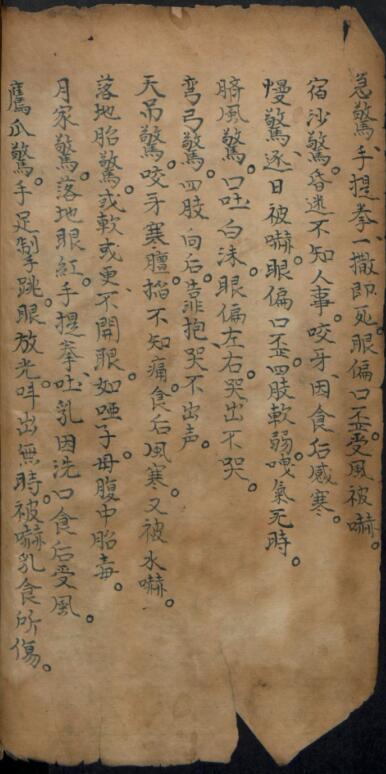 急驚。手提拳一撒即死。眼偏口歪受風被嚇。
宿沙驚。昏迷不知人事。咬牙因食后感寒。
慢驚。逐日被嚇。眼偏口歪。四肢軟弱。嘆氣无時。
臍風驚。口吐白沫。眼偏左右。哭出不哭。
弯弓驚。四肢向后靠抱哭不出声。
天吊驚。咬牙寒膻掐不知痛。食后風寒。又被水嚇。
落地胎驚。或軟或更不開眼。如哑子母腹中胎毒。
月家驚。落地眼紅。手提拳吐乳因洗口食后受風。
鷹爪驚。手足掣跳。眼放光哶出無時。被嚇乳食所傷。